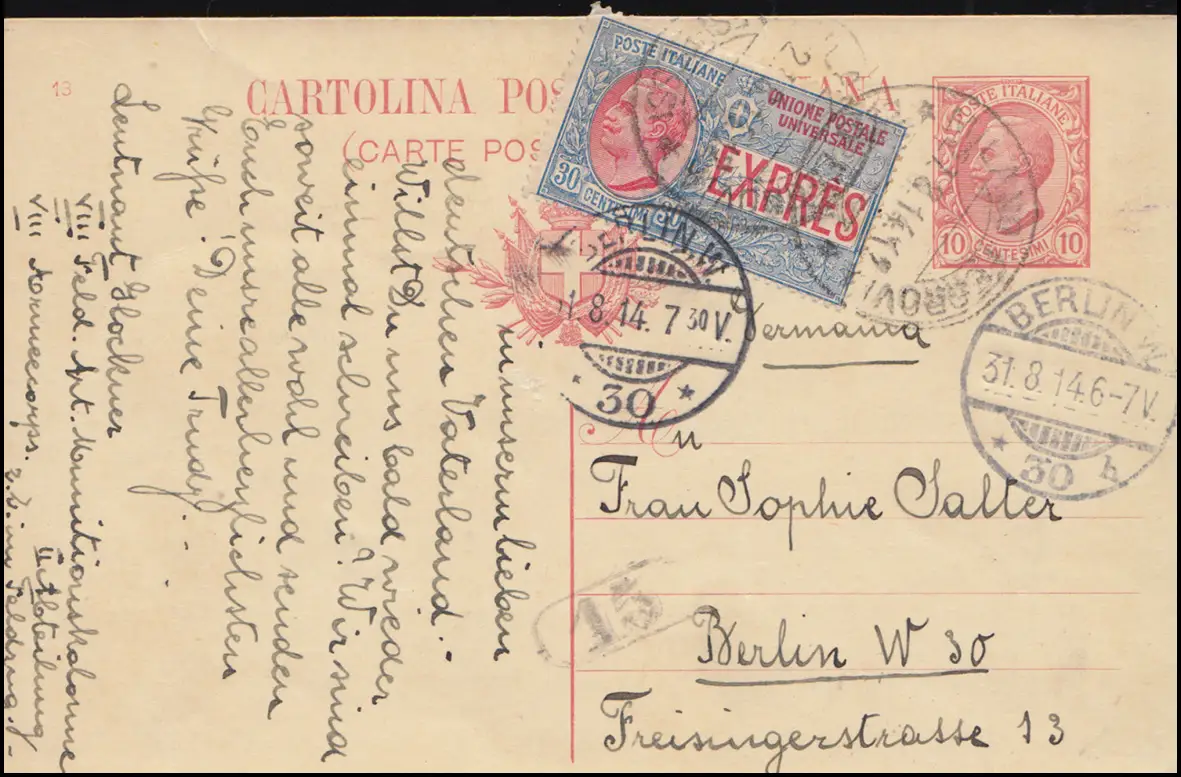 13
CARTOLINA POS
ANA
(CARTE POS
POSTE ITALIANE
UNIONE POSTALE
UNIVERSALE
EXPRÈS
30 CENTESIMI 30
POSTE ITALIANE
10 CENTESIMI 10
8.14.19
BERLIN W.
1.8.14. 7 30 V.
* 30 *
BERLIN W.
31.8.14.6-7V.
* 30 h
Germania
An
Frau Sophie Salter
Berlin W 30
Freisingerstrasse 13
15
in unserm lieben
deutschen Vaterland.
Willst Du uns bald wieder
einmal schreiben? Wir sind
soweit alle wohl und senden
Euch unsre allerherzlichsten
Grüße! Deine Trudy.
Leutnant Glockner
VIII Feld. Art. Munitionskolonne
II Abteilung
VIII Armeecorps. z. Z. im Feldzug.